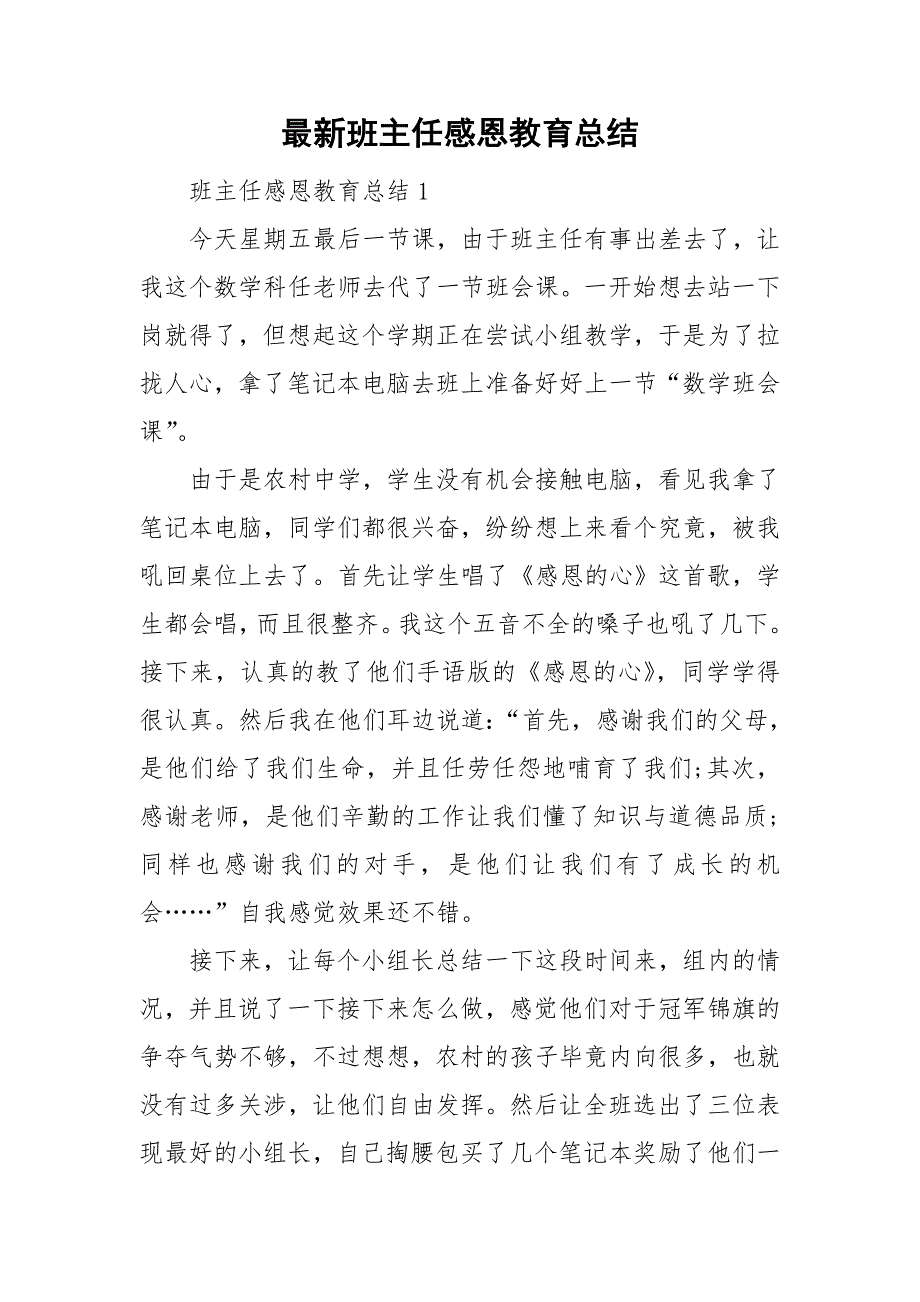 最新班主任感恩教育总结
班主任感恩教育总结1
今天星期五最后一节课，由于班主任有事出差去了，让
我这个数学科任老师去代了一节班会课。一开始想去站一下
岗就得了，但想起这个学期正在尝试小组教学，于是为了拉
拢人心，拿了笔记本电脑去班上准备好好上一节“数学班会
课”。
由于是农村中学，学生没有机会接触电脑，看见我拿了
笔记本电脑，同学们都很兴奋，纷纷想上来看个究竟，被我
吼回桌位上去了。首先让学生唱了《感恩的心》这首歌，学
生都会唱，而且很整齐。我这个五音不全的嗓子也吼了几下。
接下来，认真的教了他们手语版的《感恩的心》，同学学得
很认真。然后我在他们耳边说道：“首先，感谢我们的父母，
是他们给了我们生命，并且任劳任怨地哺育了我们;其次，
感谢老师，是他们辛勤的工作让我们懂了知识与道德品质;
同样也感谢我们的对手，是他们让我们有了成长的机
会……”自我感觉效果还不错。
接下来，让每个小组长总结一下这段时间来，组内的情
况，并且说了一下接下来怎么做，感觉他们对于冠军锦旗的
争夺气势不够，不过想想，农村的孩子毕竟内向很多，也就
没有过多关涉，让他们自由发挥。然后让全班选出了三位表
现最好的小组长，自己掏腰包买了几个笔记本奖励了他们一